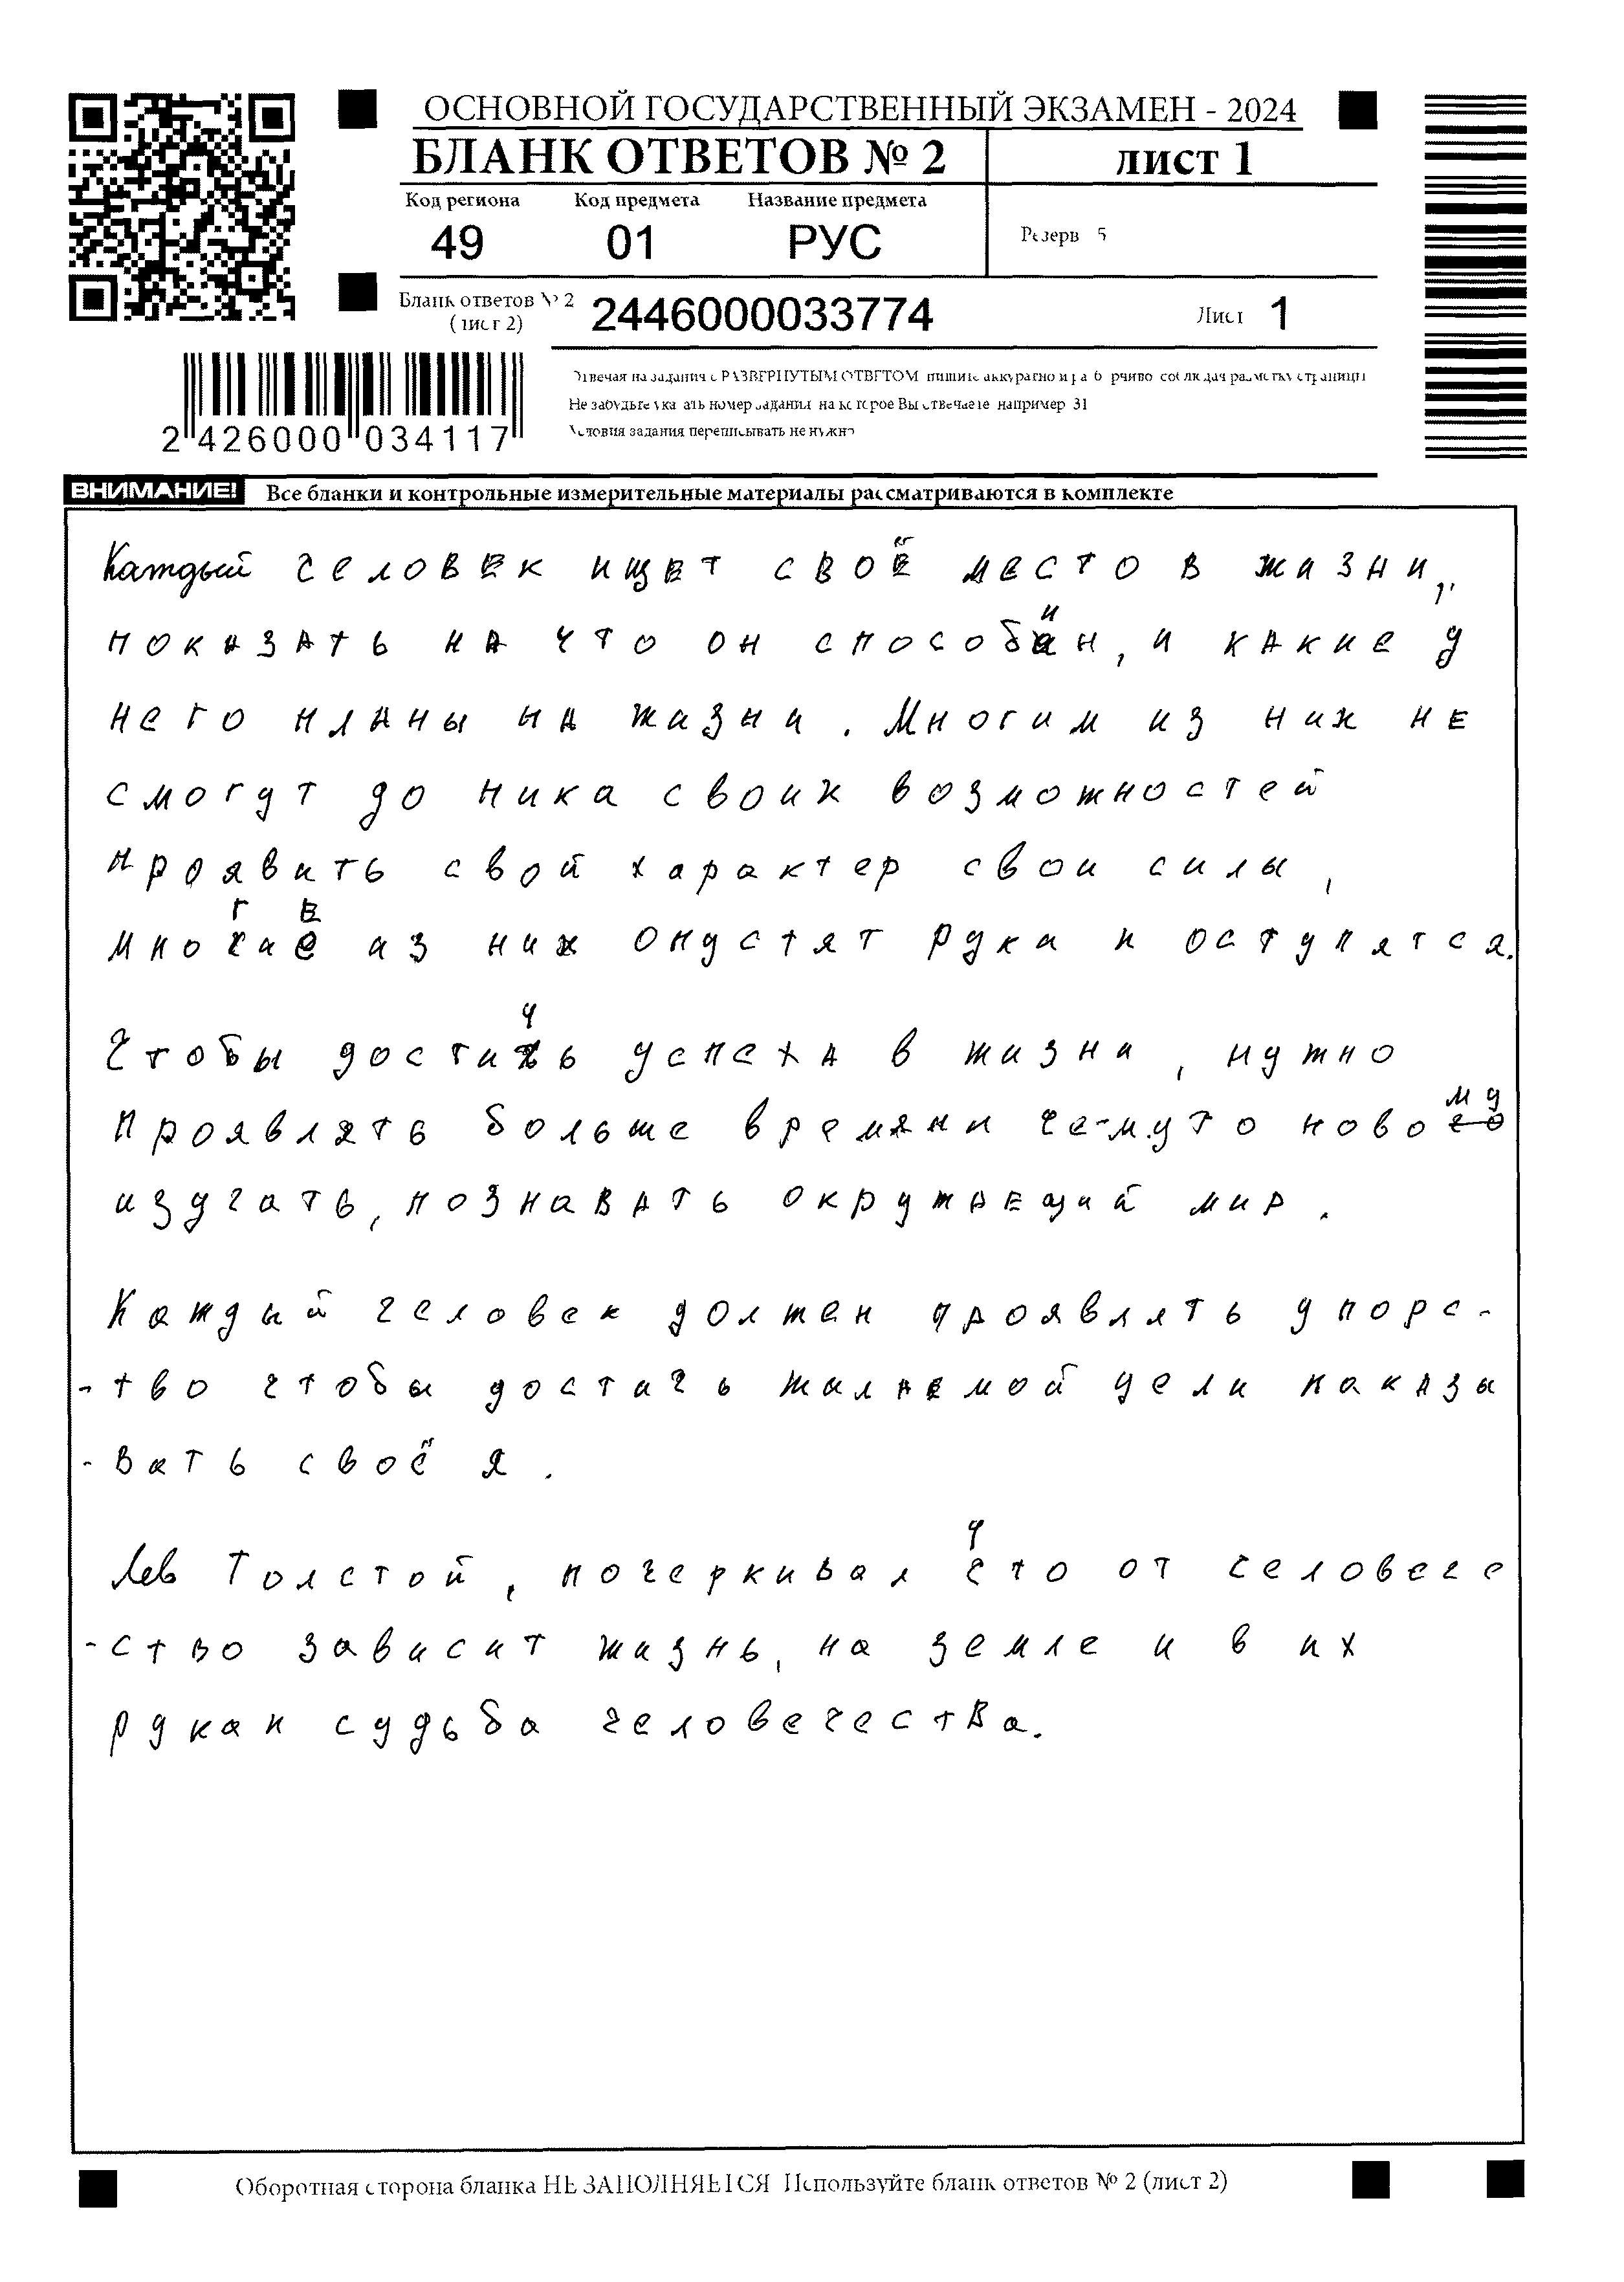 ОСНОВНОЙ ГОСУДАРСТВЕННЫЙ ЭКЗАМЕН - 2024
БЛАНК ОТВЕТОВ № 2 лист 1
Код региона Код предмета Название предмета
49 01 РУС Резерв 5
Бланк ответов № 2 (лист 2) 2446000033774 Лист 1
Отвечая на задания с РАЗВЕРНУТЫМ ОТВЕТОМ пишите аккуратно и разборчиво соблюдая разметку страницы
Не забудьте указать номер задания на которое Вы отвечаете например 31
Условия задания переписывать не нужно
2 426000 034117
ВНИМАНИЕ! Все бланки и контрольные измерительные материалы рассматриваются в комплекте
Каждый человек ищет своё место в жизни,
показать на что он способин, и какие у
него планы на жизни. Многим из них не
смогут до пика своих возможностей
проявить свой характер свои силы,
многие из них опустят руки и оступятся.
Чтобы достичь успеха в жизни, нужно
проявлять больше времяни чему то новому
изучать, познавать окружаещий мир.
Каждый человек должен проявлять упорс-
-тво чтобы достичь жилаемой цели показы
-вать своё я.
Лев Толстой, почеркивал что от человече
-ство зависит жизнь, на земле и в их
руках судьба человечества.
Оборотная сторона бланка НЕ ЗАПОЛНЯЕТСЯ Используйте бланк ответов № 2 (лист 2)